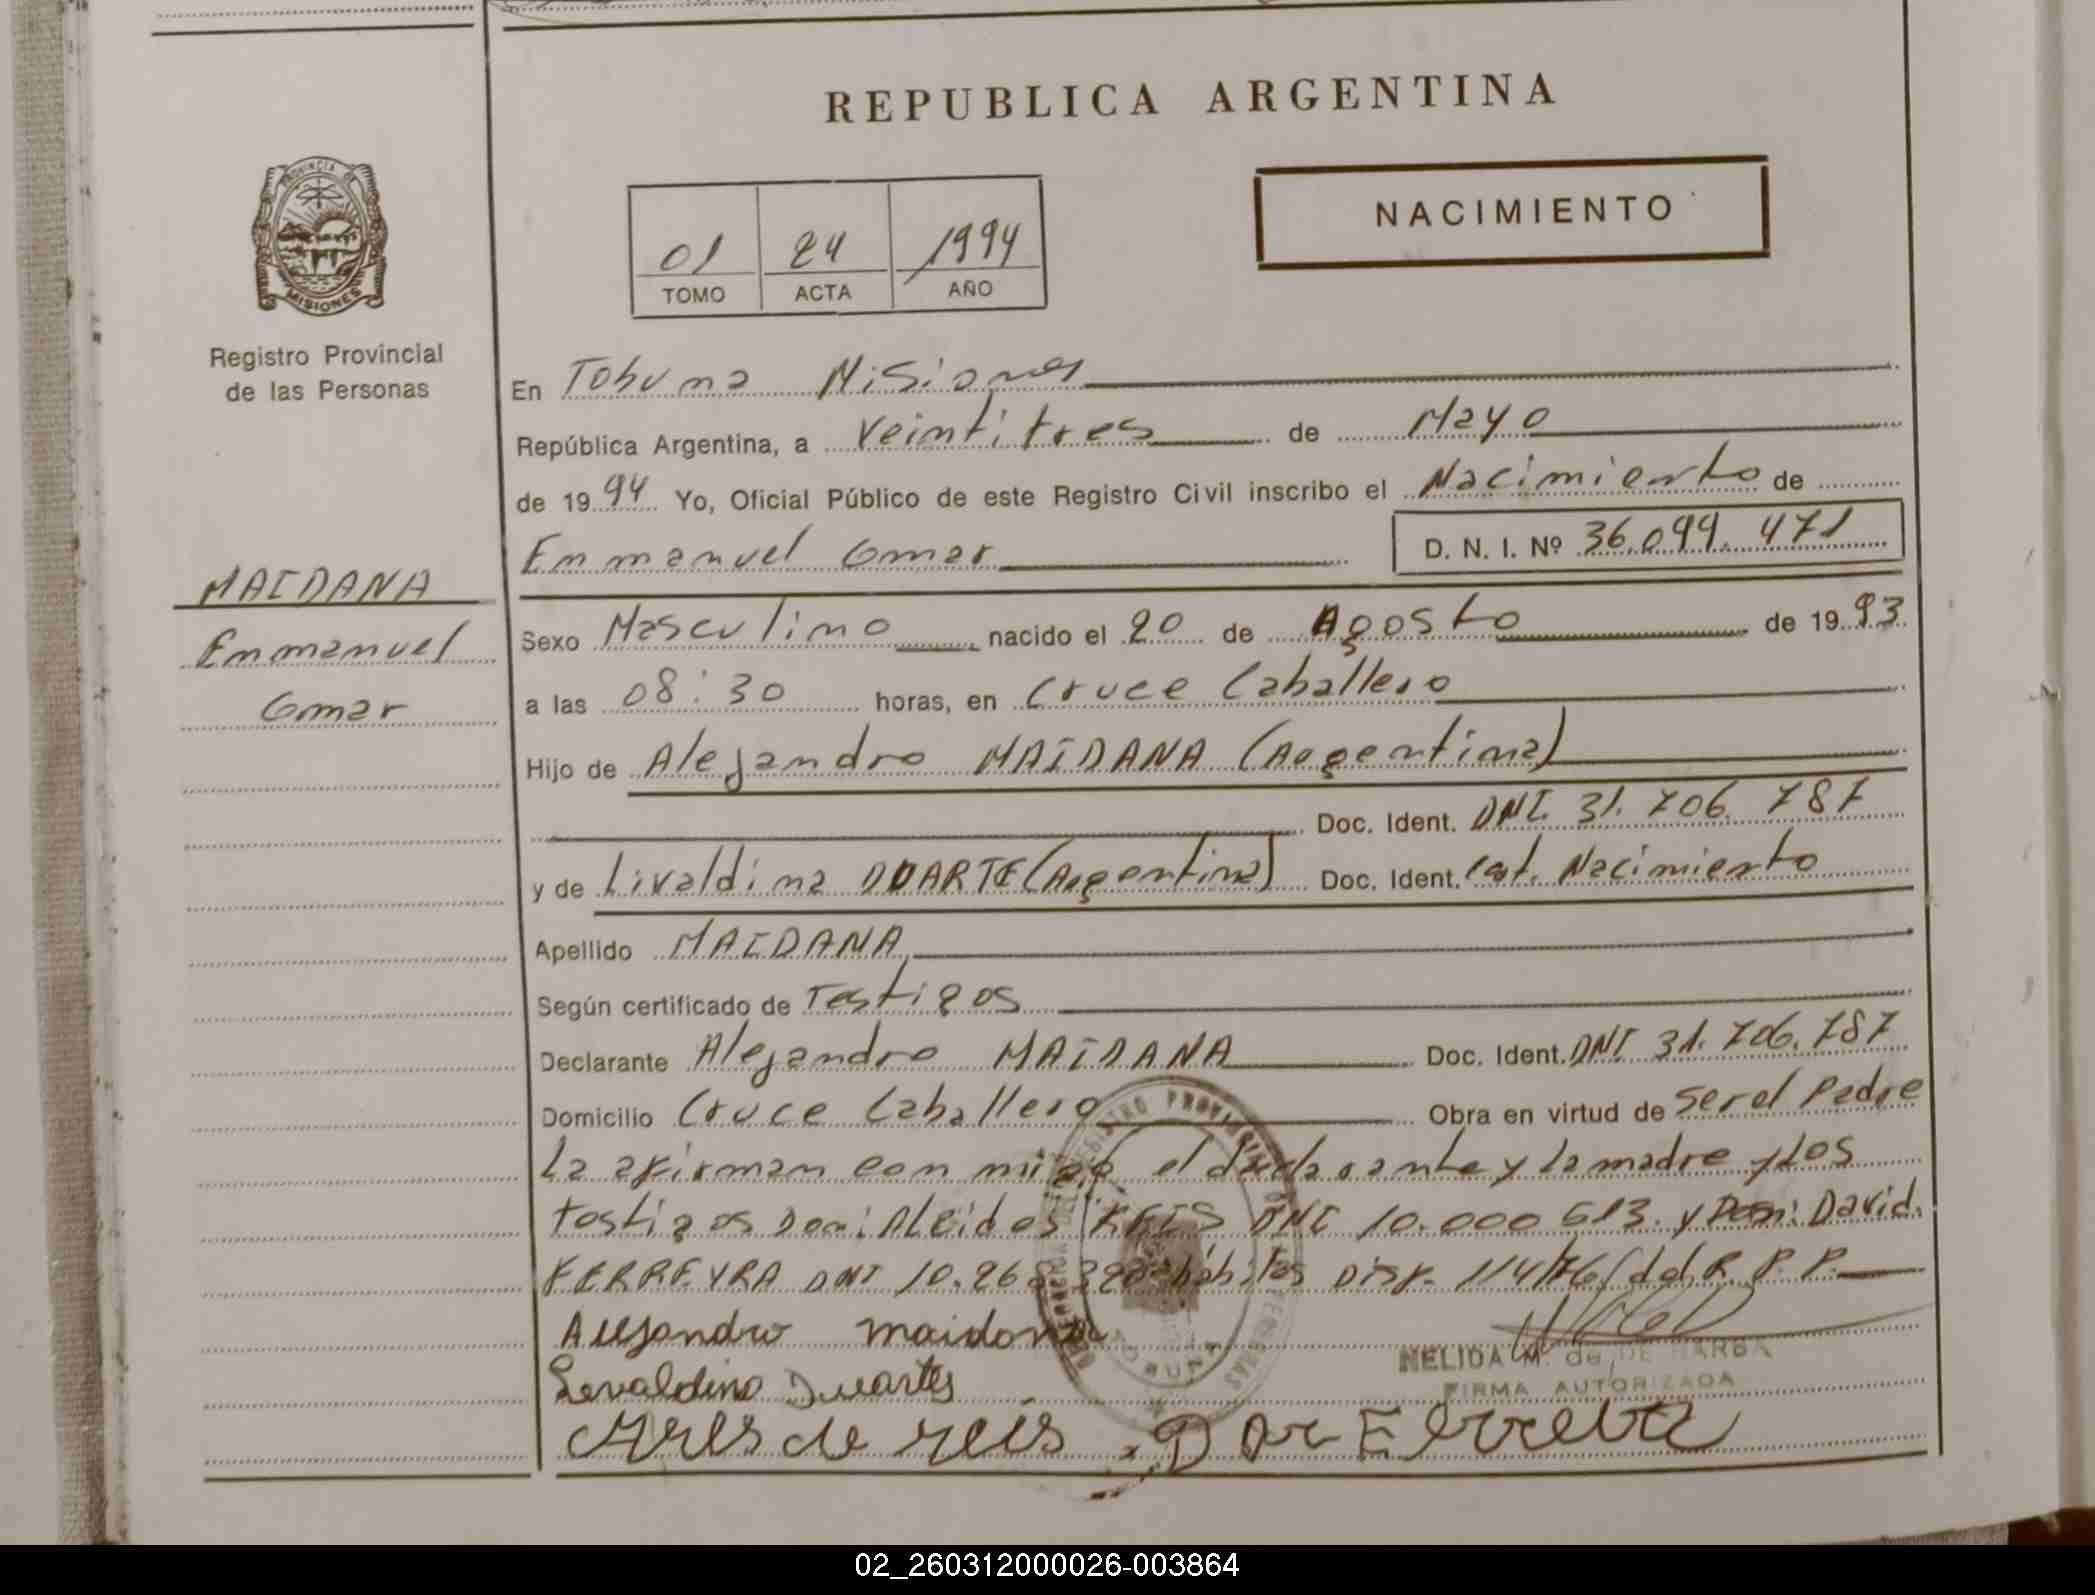 REPUBLICA ARGENTINA
PROVINCIA DE
MISIONES
Registro Provincial
de las Personas
01 24 1994
TOMO ACTA AÑO
NACIMIENTO
En Tobuna Misiones
República Argentina, a Veintitres de Mayo
de 1994 Yo, Oficial Público de este Registro Civil inscribo el Nacimiento de
Emmanuel Omar D. N. I. Nº 36.099.471
MAIDANA
Emmanuel
Omar
Sexo Masculino nacido el 20 de Agosto de 1993
a las 08:30 horas, en Cruce Caballero
Hijo de Alejandro MAIDANA (Argentina)
Doc. Ident. DNI. 31.706.787
y de Livaldina DUARTE (Argentina) Doc. Ident. Cert. Nacimiento
Apellido MAIDANA
Según certificado de Testigos
Declarante Alejandro MAIDANA Doc. Ident. DNI 31.706.787
Domicilio Cruce Caballero Obra en virtud de Ser el Padre
La afirman con migo el declarante y la madre y Los
testigos Don: Alcides REIS DNI 10.000 613. y Don: David.
FERREYRA DNI 10.26 hábiles Disp. 114/76/del R. P. P.
Alejandro Maidana
Levaldina Duartes
de reis
NELIDA M. de
FIRMA AUTORIZADA
REGISTRO PROVINCIAL DE LAS PERSONAS
TOBUNA
02_260312000026-003864